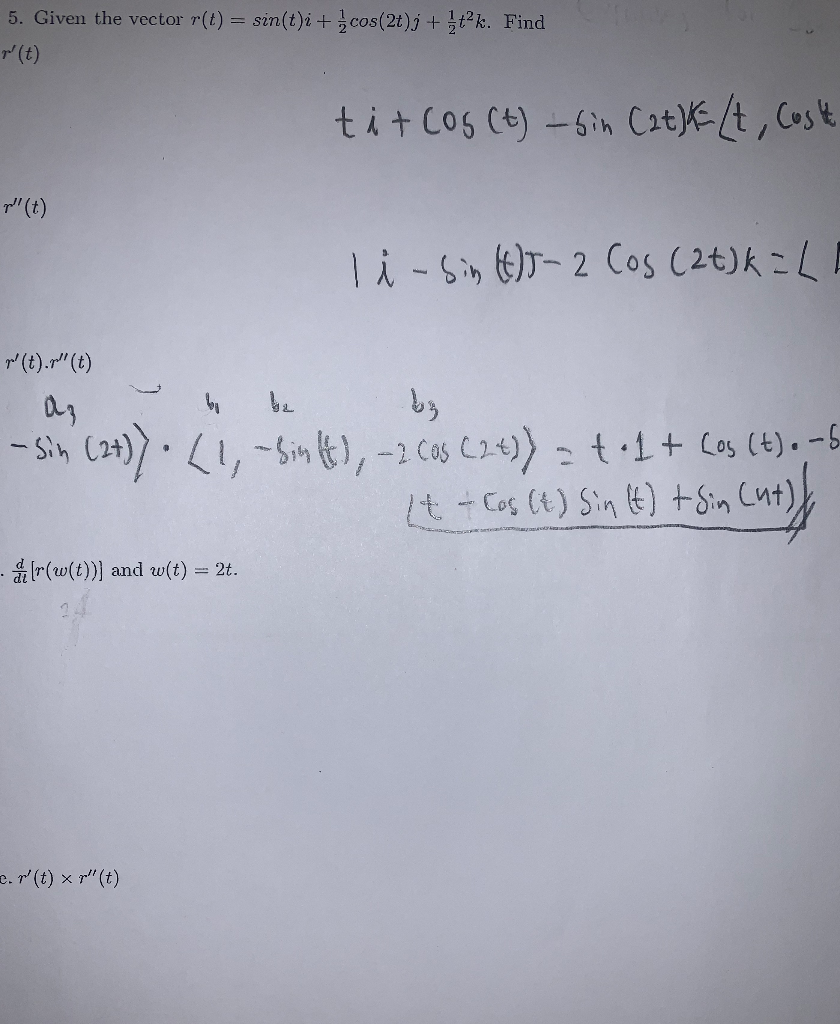 5. Given the vector r(t) = sin(t)i + ½cos(2t)j + ½t²k. Find
r'(t)
t i + cos (t) - sin (2t)k = ⟨t, cost
r''(t)
1 i - sin (t)J - 2 cos (2t)k = ⟨1
r'(t).r''(t)
a₃ b₁ b₂ b₃
- sin (2t)⟩ · ⟨1, -sin(t), -2 cos(2t)⟩ = t·1 + cos(t)·-s
⟨t - cos(t) sin(t) + sin(4t)⟩
. d/dt[r(w(t))] and w(t) = 2t.
e. r'(t) × r''(t)